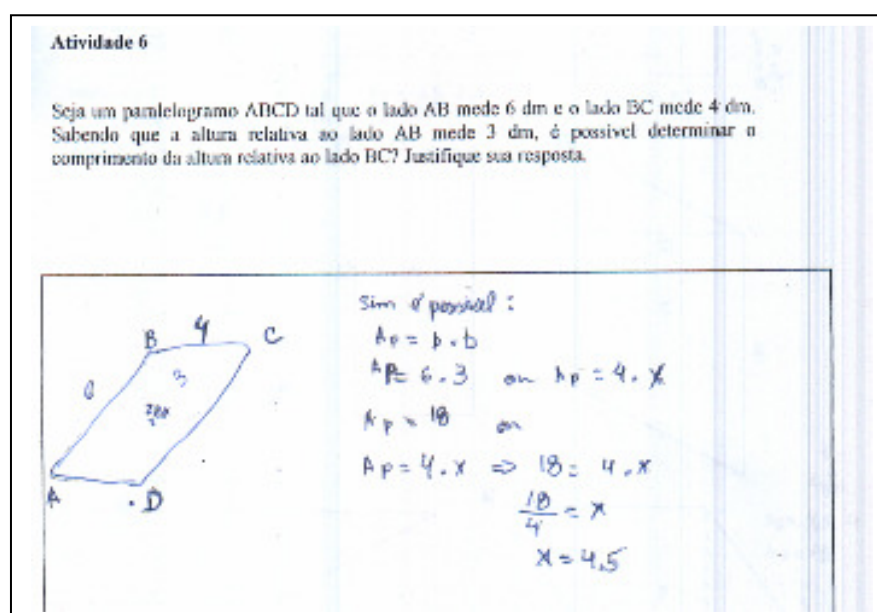 Atividade 6
Seja um paralelogramo ABCD tal que o lado AB mede 6 dm e o lado BC mede 4 dm.
Sabendo que a altura relativa ao lado AB mede 3 dm, é possível determinar o
comprimento da altura relativa ao lado BC? Justifique sua resposta.
Sim é possível :
B 4 C
Ap = b . b
6 3
Ap = 6 . 3 ou Ap = 4 . x
Ap = 18 ou
Ap = 4 . x ⇒ 18 = 4 . x
A . D
18/4 = x
x = 4,5